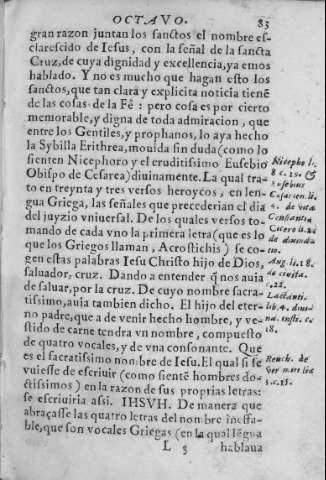 OCTAVO. 83
gran razon juntan los sanctos el nombre es-
clarescido de Iesus, con la señal de la sancta
Cruz, de cuya dignidad y excellencia, ya emos
hablado. Y no es mucho que hagan esto los
sanctos, que tan clara y explicita noticia tienē
de las cosas de la Fè: pero cosa es por cierto
memorable, y digna de toda admiracion, que
entre los Gentiles, y prophanos, lo aya hecho
la Sybilla Erithrea, mouida sin duda (como lo
sienten Nicephoro y el eruditissimo Eusebio
Obispo de Cesarea) diuinamente. La qual tra-
to en treynta y tres versos heroycos, en len-
gua Griega, las señales que precederian el dia
del juyzio vniuersal. De los quales versos to-
mando de cada vno la primera letra (que es lo
que los Griegos llaman, Acrostichis) se co-
gen estas palabras Iesu Christo hijo de Dios,
saluador, cruz. Dando a entender q̄ nos auia
de saluar, por la cruz. De cuyo nombre sacra-
tissimo, auia tambien dicho. El hijo del eter-
no padre, que a de venir hecho hombre, y ve-
stido de carne tendra vn nombre, compuesto
de quatro vocales, y de vna consonante. Que
es el sacratissimo nombre de Iesu. El qual si se
vuiesse de escriuir (como sientē hombres do-
ctissimos) en la razon de sus proprias letras:
se escriuiria assi. IHSVH. De manera que
abraçasse las quatro letras del nombre ineffa-
ble, que son vocales Griegas (en la qual lēgua
L 3 hablaua
Nicepho li.
8 c. 29. &
Eusebius
Cesarien. li.
4. de vita
Constanti.
Cicero li. 2.
de diuina
Aug. li. 18.
de ciuita.
c. 23.
Lactanti.
lib. 4. diui-
na. insti. c.
18.
Reuch. de